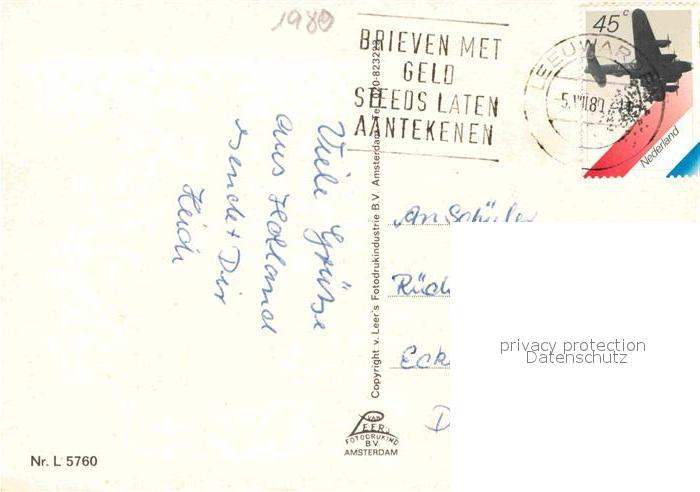 1980
BRIEVEN MET
GELD
STEEDS LATEN
AANTEKENEN
LEEUWAR
-5.VIII80
45c
Nederland
Viele Grüsse
aus Holland
sendet Dir
Heidi
Copyright v. Leer's Fotodrukindustrie B.V. Amsterdam
An Schüler
privacy protection
Datenschutz
VAN
LEER's
FOTODRUKIND
B.V.
AMSTERDAM
Nr. L 5760